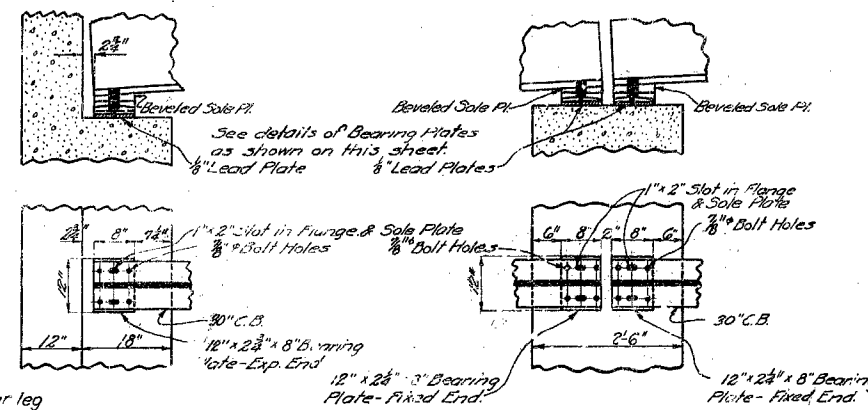 2 3/4"
Beveled Sole Pl.
See details of Bearing Plates
as shown on this sheet.
1/8" Lead Plate
Beveled Sole Pl.
Beveled Sole Pl.
1/8" Lead Plates
2 3/4"
8"
7 1/4"
1" x 2" Slot in Flange & Sole Plate
7/8"ø Bolt Holes
12"
30" C.B.
12" x 2 3/4" x 8" Bearing
Plate-Exp. End
12"
18"
1" x 2" Slot in Flange
& Sole Plate
7/8"ø Bolt Holes
7/8"ø Bolt Holes
6"
8"
2"
8"
6"
12"
30" C.B.
2'-6"
12" x 2 1/4" x 8" Bearing
Plate-Fixed End.
12" x 2 1/4" x 8" Bearing
Plate-Fixed End.
leg